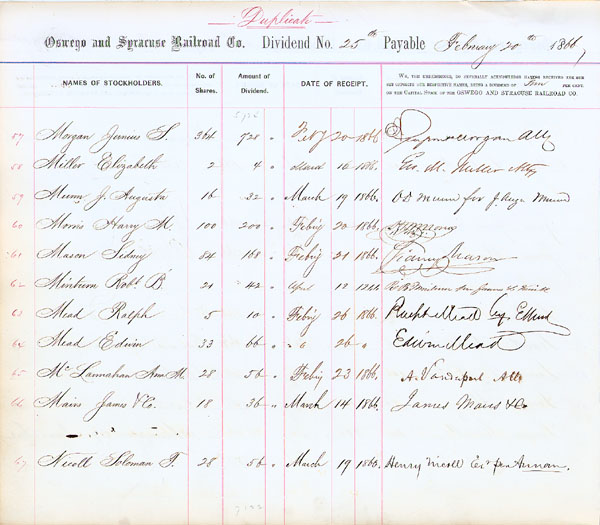 Duplicate
Oswego and Syracuse Railroad Co. Dividend No. 25th Payable February 20th 1866
NAMES OF STOCKHOLDERS. No. of Shares. Amount of Dividend. DATE OF RECEIPT. WE, THE UNDERSIGNED, DO SEVERALLY ACKNOWLEDGE HAVING RECEIVED THE SUM
SET OPPOSITE OUR RESPECTIVE NAMES, BEING A DIVIDEND OF PER CENT.
ON THE CAPITAL STOCK OF THE OSWEGO AND SYRACUSE RAILROAD CO.
57 Morgan Junius S. 364 728 " Feby 20 1866 Atty
58 Miller Elizabeth 2 4 " March 16 1866. Geo. M. Miller Atty
59 Munn J. Augusta 16 32 " March 19 1866. O.D. Munn for J. Aug. Munn
60 Morris Harry M. 100 200 " Feby 20 1866.
61 Mason Sidney 84 168 " Feby 21 1866. Sidney Mason
62 Minturn Robt. B. 21 42 " April 12 1866
63 Mead Ralph 5 10 " Feby 26 1866. Ralph Mead
64 Mead Edwin 33 66 " " 26 " Edwin Mead
65 28 56 " Feby 23 1866. Atty
66 Mairs James & Co. 18 36 " March 14 1866. James Mairs & Co
67 Nicoll Soloman T. 28 56 " March 19 1866. Henry Nicoll Exr